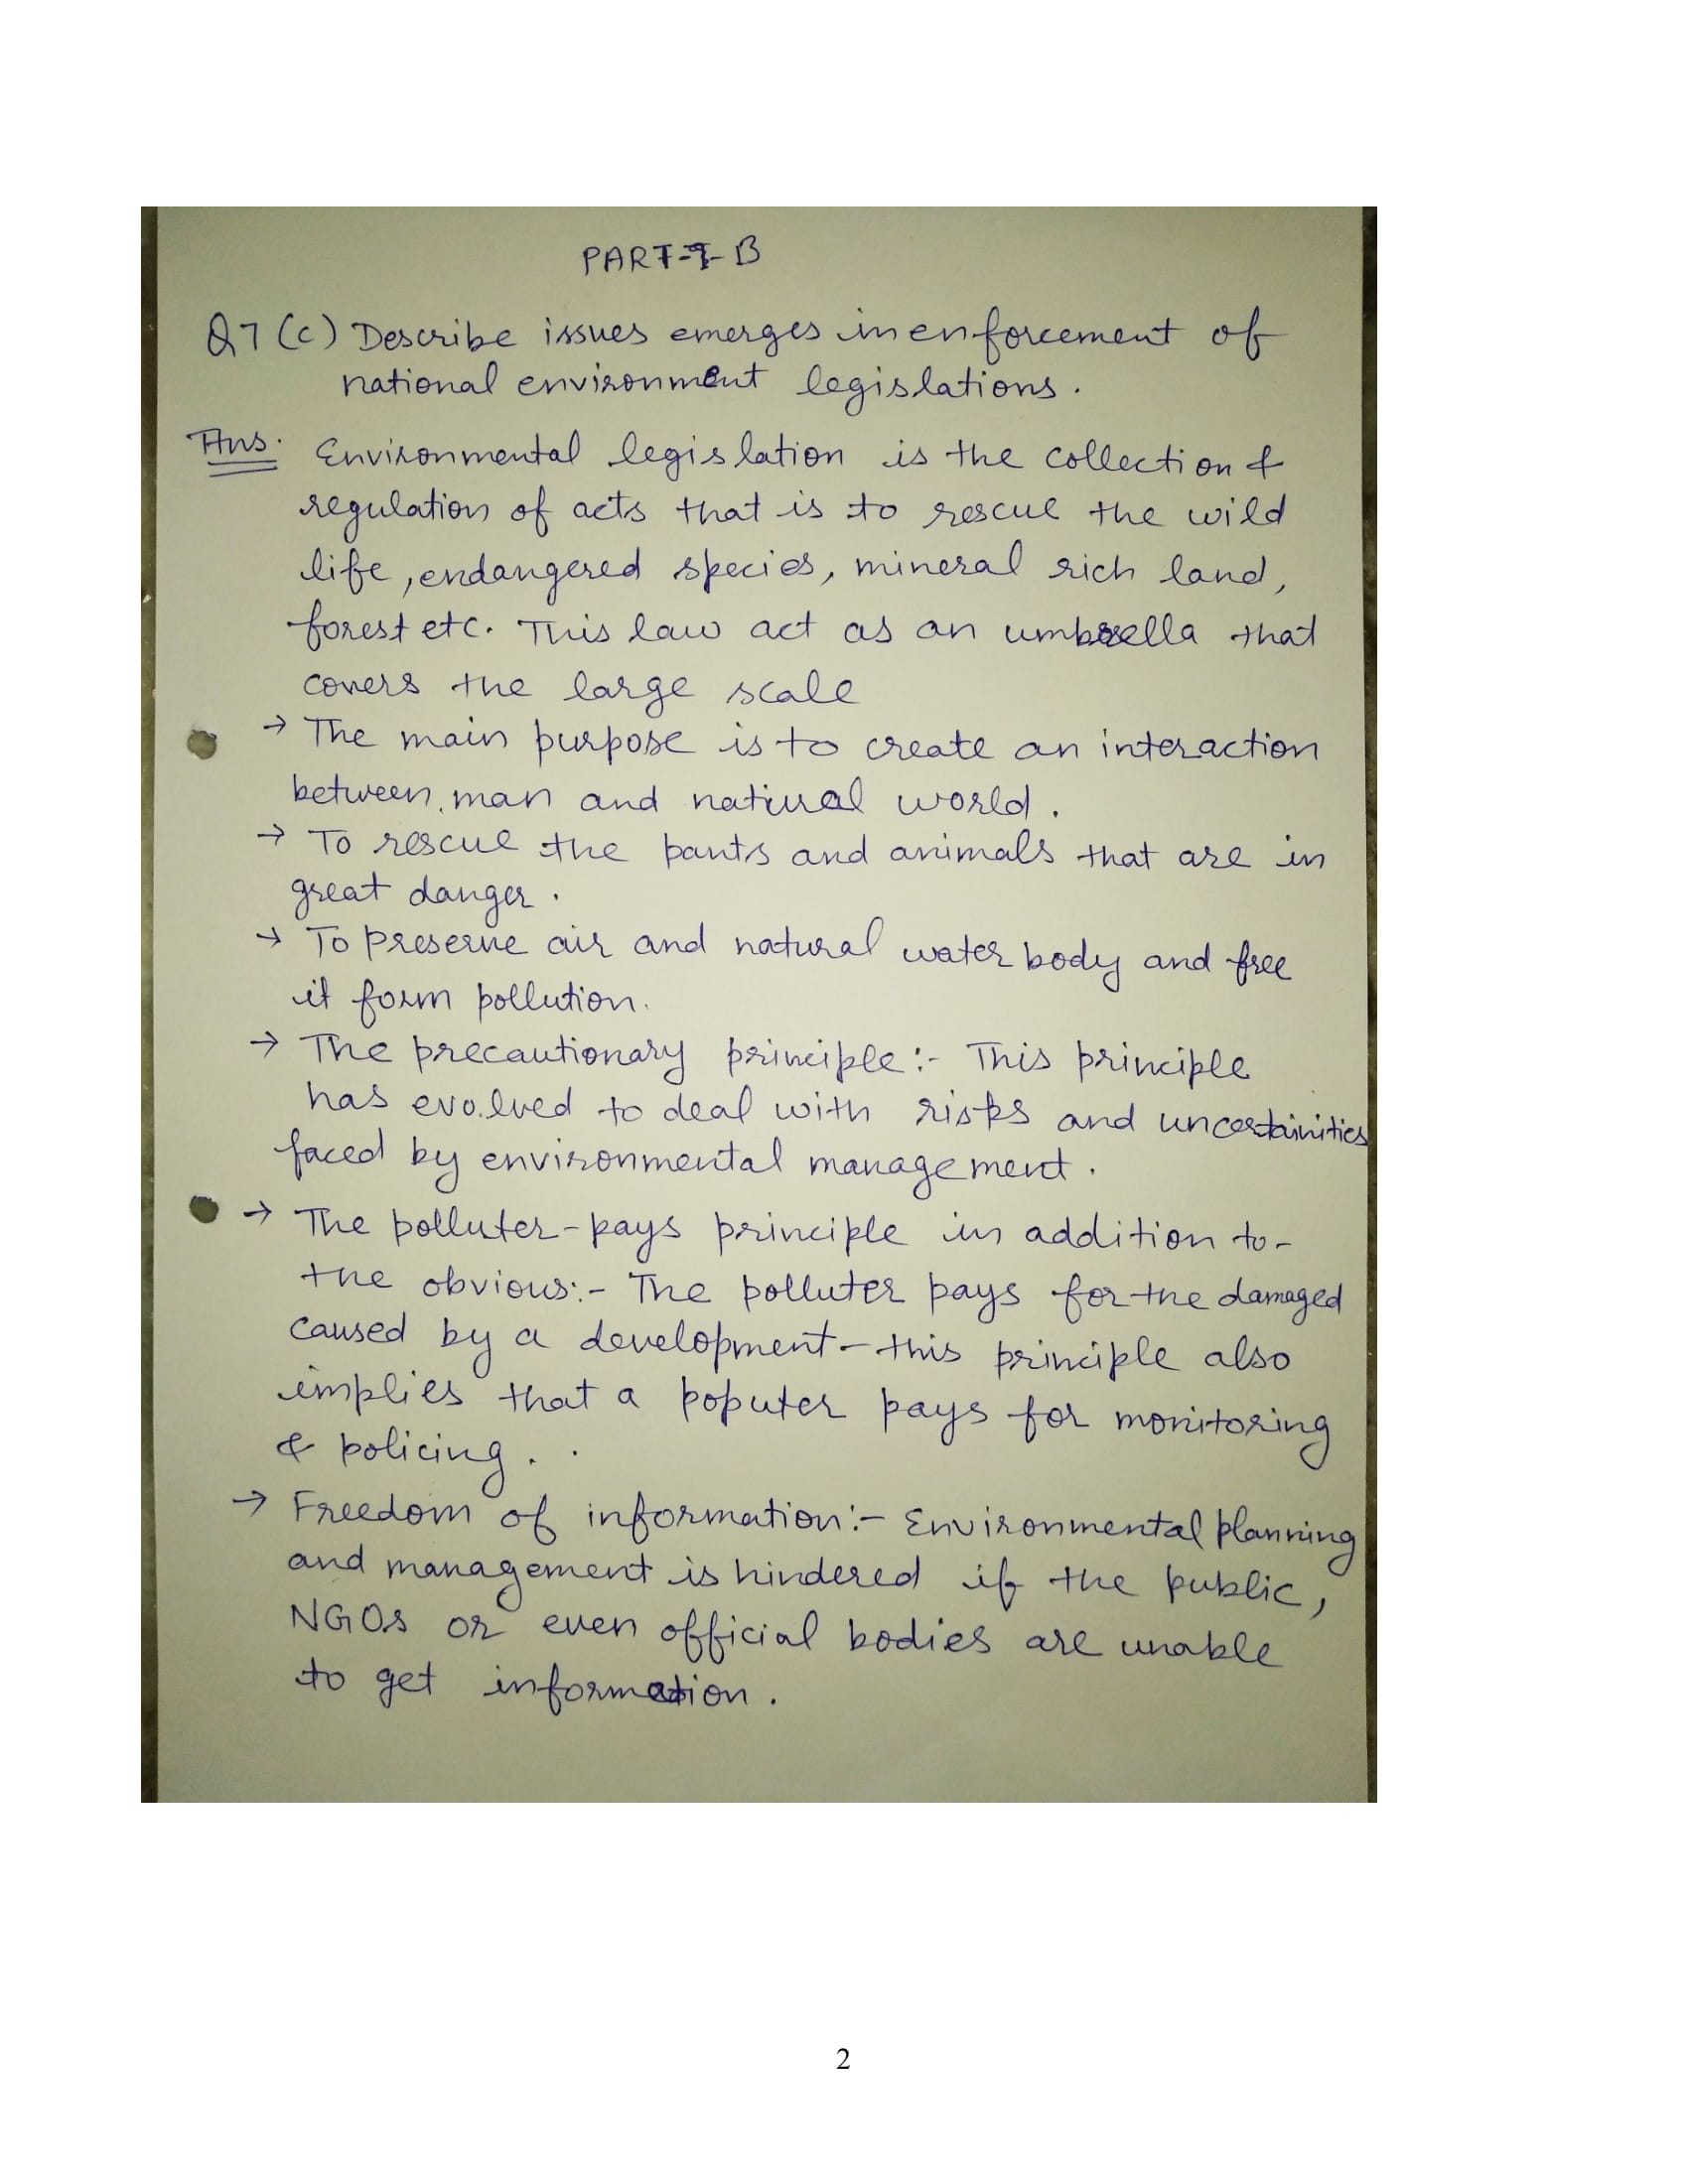 PART-B
Q7 (c) Describe issues emerges in enforcement of
national environment legislations.
Ans. Environmental legislation is the collection &
regulation of acts that is to rescue the wild
life, endangered species, mineral rich land,
forest etc. This law act as an umbrella that
covers the large scale
→ The main purpose is to create an interaction
between man and natural world.
→ To rescue the pants and animals that are in
great danger.
→ To preserve air and natural water body and free
it form pollution.
→ The precautionary principle:- This principle
has evolved to deal with risks and uncertainities
faced by environmental management.
→ The polluter-pays principle in addition to-
the obvious:- The polluter pays for the damaged
caused by a development - this principle also
implies that a poputer pays for monitoring
& policing.
→ Freedom of information:- Environmental planning
and management is hindered if the public,
NGOs or even official bodies are unable
to get information.
2